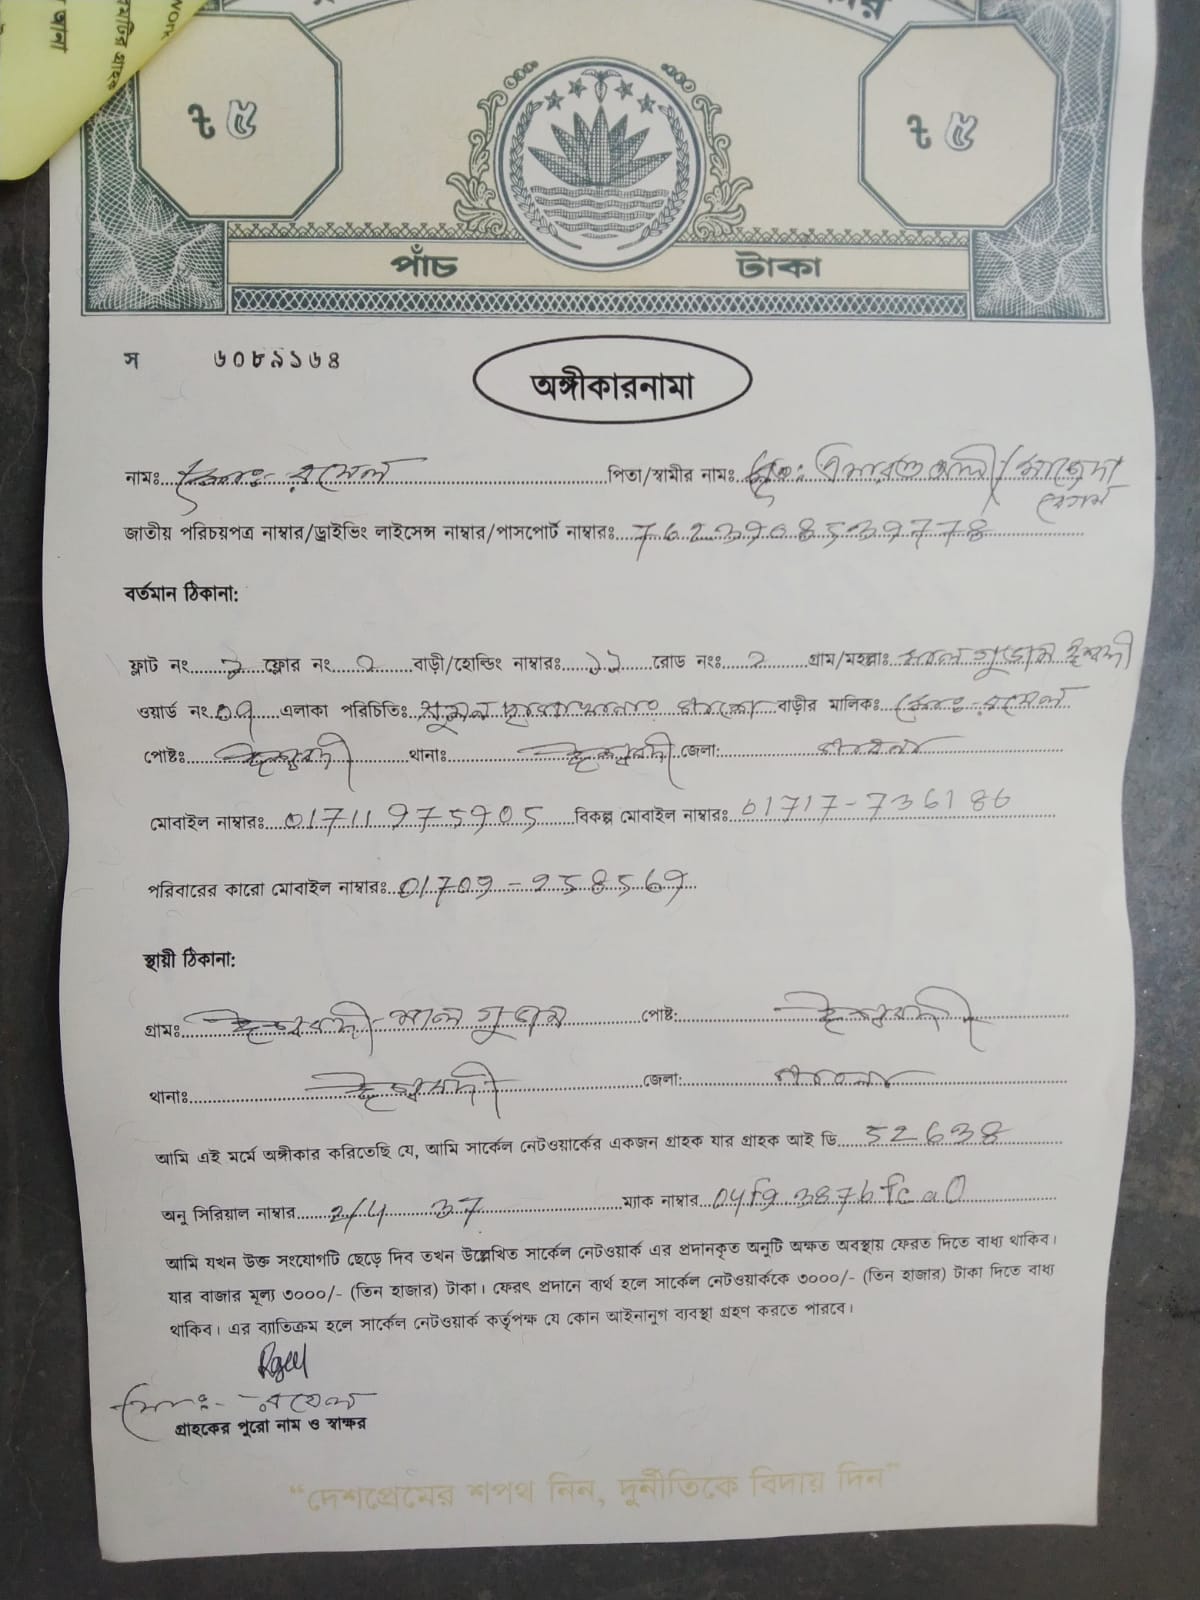 work
জানা
৳ ৫
৳ ৫
পাঁচ টাকা
স ৬০৮৯১৬৪
অঙ্গীকারনামা
নামঃ মোঃ রাসেল পিতা/স্বামীর নামঃ মৃতঃ আলী/মাজেদা
বেগম
জাতীয় পরিচয়পত্র নাম্বার/ড্রাইভিং লাইসেন্স নাম্বার/পাসপোর্ট নাম্বারঃ
বর্তমান ঠিকানা:
ফ্লাট নং ফ্লোর নং ২ বাড়ী/হোল্ডিং নাম্বারঃ ১১ রোড নংঃ ২ গ্রাম/মহল্লাঃ মালগুদাম ঈশ্বরদী
ওয়ার্ড নং ০৭ এলাকা পরিচিতিঃ বাড়ীর মালিকঃ মোঃ রাসেল
পোষ্টঃ ঈশ্বরদী থানাঃ ঈশ্বরদী জেলা: পাবনা
মোবাইল নাম্বারঃ 01711975905 বিকল্প মোবাইল নাম্বারঃ 01717-736186
পরিবারের কারো মোবাইল নাম্বারঃ 01709-258569
স্থায়ী ঠিকানা:
গ্রামঃ ঈশ্বরদী মাল গুদাম পোষ্ট: ঈশ্বরদী
থানাঃ ঈশ্বরদী জেলা: পাবনা
আমি এই মর্মে অঙ্গীকার করিতেছি যে, আমি সার্কেল নেটওয়ার্কের একজন গ্রাহক যার গ্রাহক আই ডি 52638
অনু সিরিয়াল নাম্বার 2/4 37 ম্যাক নাম্বার 04f9 387b fc a0
আমি যখন উক্ত সংযোগটি ছেড়ে দিব তখন উল্লেখিত সার্কেল নেটওয়ার্ক এর প্রদানকৃত অনুটি অক্ষত অবস্থায় ফেরত দিতে বাধ্য থাকিব।
যার বাজার মূল্য ৩০০০/- (তিন হাজার) টাকা। ফেরৎ প্রদানে ব্যর্থ হলে সার্কেল নেটওয়ার্ককে ৩০০০/- (তিন হাজার) টাকা দিতে বাধ্য
থাকিব। এর ব্যাতিক্রম হলে সার্কেল নেটওয়ার্ক কর্তৃপক্ষ যে কোন আইনানুগ ব্যবস্থা গ্রহণ করতে পারবে।
মোঃ- রাসেল
গ্রাহকের পুরো নাম ও স্বাক্ষর
“দেশপ্রেমের শপথ নিন, দুর্নীতিকে বিদায় দিন”